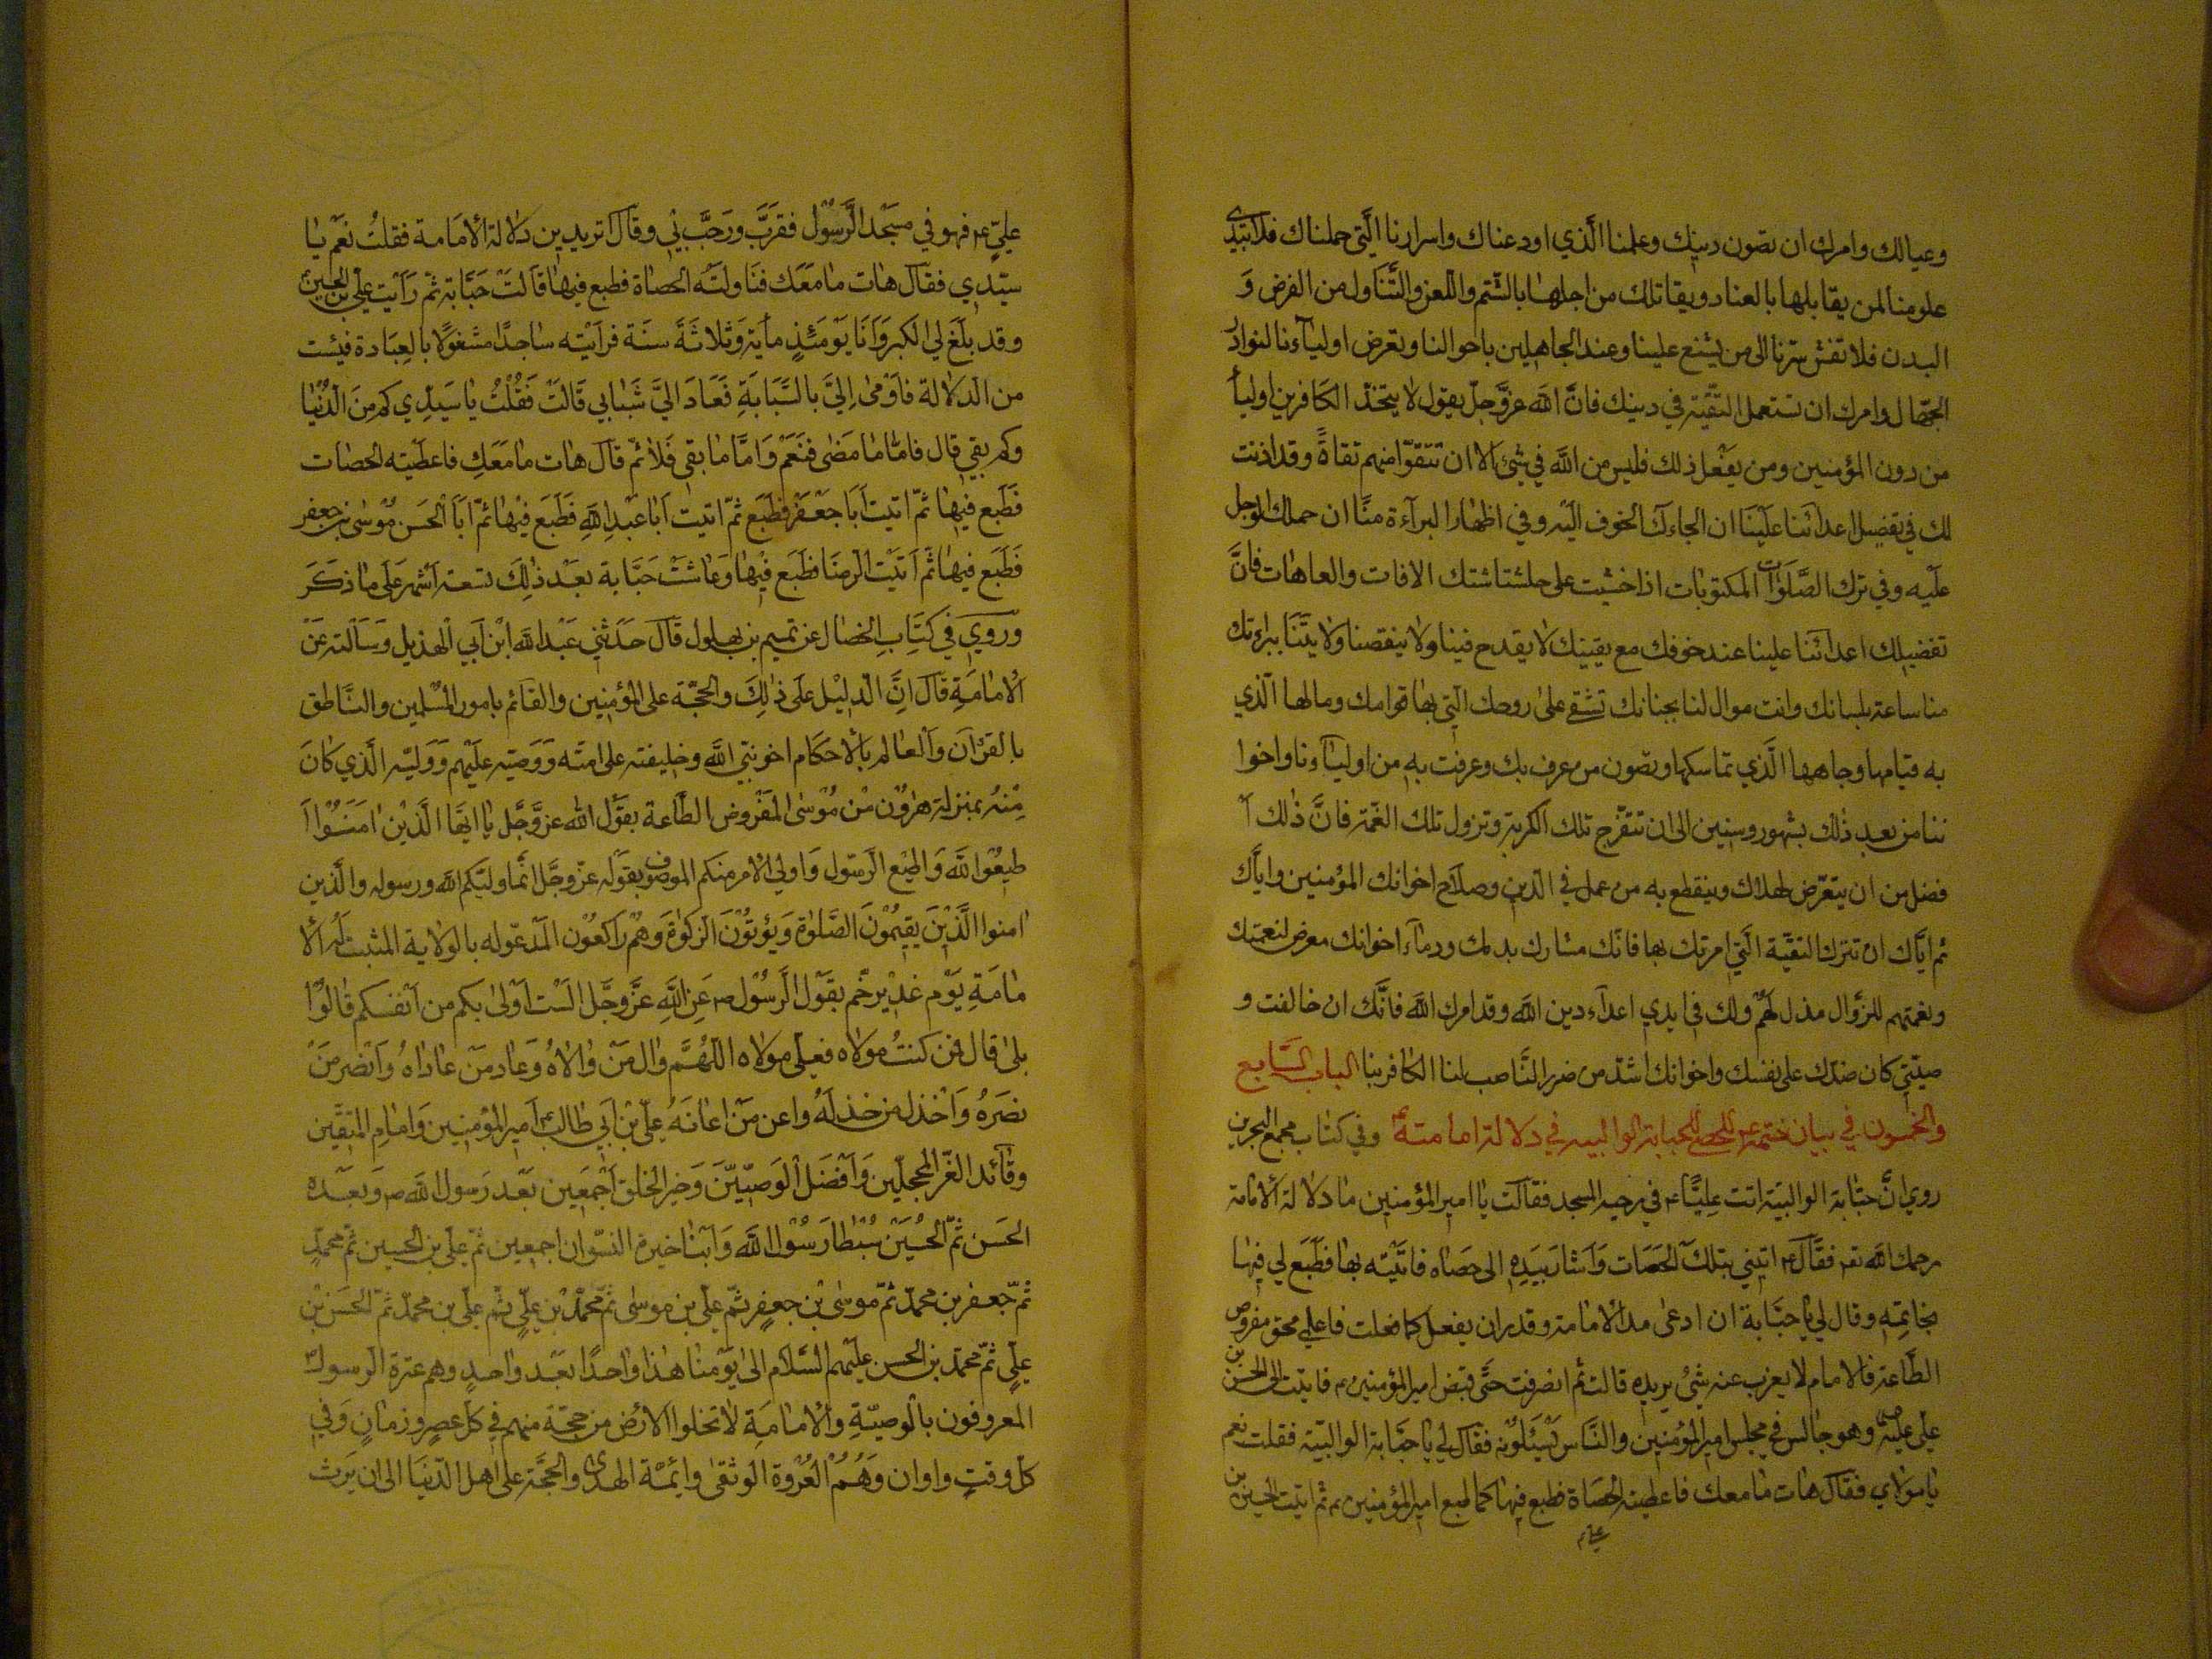 وعيالك وامرك ان تصون دينك وعلمنا الذي اودعناك واسرارنا التي حملناك فلا تبدي
علومنا لمن يقابلها بالعناد ويقاتلك من اجلها بالشتم واللعن والتناول من الفرض و
البدن فلا تفش سرنا الى من يشنع علينا وعند الجاهلين باحوالنا ويعرض اوليآءنا لنوادر
الجهال وامرك ان تستعمل التقية في دينك فان الله عز وجل يقول لا يتخذ الكافرين اوليآ
من دون المؤمنين ومن يفعل ذلك فليس من الله في شئ الا ان تتقوا منهم تقاةً وقد اذنت
لك في تفضيل اعدائنا علينا ان الجاءك الخوف اليه وفي اظهار البرآءة منا ان حملك الوجل
عليه وفي ترك الصلوات المكتوبات اذا خشيت على الافات والعاهات فان
تفضيلك اعدائنا علينا عند خوفك مع يقينك لا يقدح فينا ولا ينقصنا ولا براءتك
منا ساعة بلسانك وانت موال لنا بجنانك تشقى على روحك التي بها قوامك ومالها الذي
به قيامها وجاهها الذي تماسكها وتصون من عرف بك وعرفت به من اوليآءنا واخوا
ننا من بعد ذلك بشهور وسنين الى ان تتفرج تلك الكربة وتزول تلك الغمة فان ذلك ا
فضل من ان يتعرض طهلاك وينقطع به من عمل في الدين وصلاح اخوانك المؤمنين واياك
ثم اياك ان تترك التقية التي امرتك بها فانك مشارك بدمك ودماء اخوانك معرض لنعمتك
ونعمتهم للزوال مذل لهم ولك في ايدي اعدآء دين الله وقد امرك الله فانك ان خالفت و
صيتي كان ضدك على نفسك واخوانك اشد من ضرر الناصب لنا الكافر بنا الباب السابع
والخمسون في بيان ختمه ع للحصى للحبابة الوالبيه في دلالة امامته وفي كتاب مجمع البحرين
روي ان حبابة الوالبية اتت عليا ع في رحبه المسجد فقالت يا امير المؤمنين ما دلالة الامامة
رحمك الله فقال ع اتيني بتلك الحصات واشار بيده الى حصاه فاتيته بها فطبع لي فيها
بخاتمه وقال لي يا حبابة ان ادعى مدالامامة وقدر ان يفعل كما فعلت فاعلي محق مفروض
الطاعة فالامام لا يعزب عنه شئ يريده قالت ثم انصرفت حتى قبض امير المؤمنين ع فاتيت الى الحسن بن
علي عليه وهو جالس في مجلس امير المؤمنين والناس يسئلونه فقال لي يا حبابة الوالبية فقلت نعم
يا مولاي فقال هات ما معك فاعطيته الحصاة فطبع فيها كما طبع امير المؤمنين ع ثم اتيت الحسين بن
علي ع
علي ع فهو في مسجد الرسول فقرب ورحب بي وقال اتريدين دلالة الامامة فقلت نعم يا
سيدي فقال هات ما معك فناولته الحصاة فطبع فيها قالت حبابة ثم رايت علي بن الحسين
وقد بلغ لي الكبر وانا يومئذ مأية وثلاثة سنة فرايته ساجدًا مشغولا بالعبادة فيئست
من الدلالة فاومى الي بالسبابة فعاد الي شبابي قالت فقلت يا سيدي كم من الدنيا
وكم بقي قال فاما ما مضى فنعم واما ما بقى فلا ثم قال هات ما معك فاعطيته الحصات
فطبع فيها ثم اتيت ابا جعفر فطبع ثم اتيت ابا عبد الله فطبع فيها ثم ابا الحسن موسى بن جعفر
فطبع فيها ثم اتيت الرضا فطبع فيها وعاشت حبابة بعد ذلك تسعة اشهر على ما ذكر
وروي في كتاب الخصال عن تميم بن بهلول قال حدثني عبد الله ابن ابي الهذيل وسالته عن
الامامة قال ان الدليل على ذلك والحجة على المؤمنين والقائم بامور المسلمين والناطق
بالقرآن والعالم بالاحكام اخو نبي الله وخليفته على امته ووصيه عليهم ووليه الذي كان
منه بمنزلة هرون من موسى المفروض الطاعة بقول الله عز وجل يا ايها الذين امنوا ا
طيعوا لله واطيع الرسول واولي الامر منكم الموصوف بقوله عز وجل انما وليكم الله ورسوله والذين
امنوا الذين يقيمون الصلوة ويؤتون الزكوة وهم راكعون المدعو له بالولاية المثبت له الا
مامة يوم غدير خم بقول الرسول ص عن الله عز وجل الست اولى بكم من انفسكم قالوا
بلى قال فمن كنت مولاه فعلي مولاه اللهم وال من والاه وعاد من عاداه وانصر من
نصره واخذل من خذله واعن من اعانه علي بن ابي طالب امير المؤمنين وامام المتقين
وقائد الغر المحجلين وافضل الوصيين وخير الخلق اجمعين بعد رسول الله ص وبعده
الحسن ثم الحسين سبطا رسول الله وابنا خيرة النسوان اجمعين ثم علي بن الحسين ثم محمد
ثم جعفر بن محمد ثم موسى بن جعفر ثم علي بن موسى ثم محمد بن علي ثم علي بن محمد ثم الحسن بن
علي ثم محمد بن الحسن عليهم السلام الى يومنا هذا واحدًا بعد واحد وهم عترة الرسول
المعروفون بالوصية والامامة لا تخلوا الارض من حجة منهم في كل عصر وزمان وفي
كل وقت واوان وهم العروة الوثقى وايمة الهدى والحجة على اهل الدنيا الى ان يرث